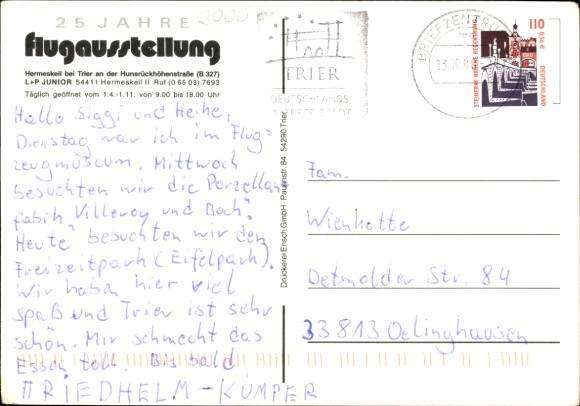 25 JAHRE 2000
flugausstellung
Hermeskeil bei Trier an der Hunsrückhöhenstraße (B 327)
L+P JUNIOR 54411 Hermeskeil II Ruf (0 65 03) 7693
Täglich geöffnet vom 1.4.-1.11. von 9.00 bis 18.00 Uhr
Hallo Siggi und Heike,
Dienstag war ich im Flug=
zeugmuseum. Mittwoch
besuchten wir die Porzellan
fabik Villeroy und Boch".
Heute besuchten wir den
Freizeitpark (Eifelpark).
Wir haben hier viel
spaß und Trier ist sehr
schön. Mir schmeckt das
Essen toll. Bis bald
FRIEDHELM-KÜMPER
Druckerei Ensch GmbH · Paulinstr. 84 · 54290 Trier
TRIER
DEUTSCHLANDS
BRIEFZENTRUM
110
0,56 €
STEINERNE BRÜCKE REGENSBURG
DEUTSCHLAND
Fam.
Wienkotte
Detmolder Str. 84
33813 Oelinghausen